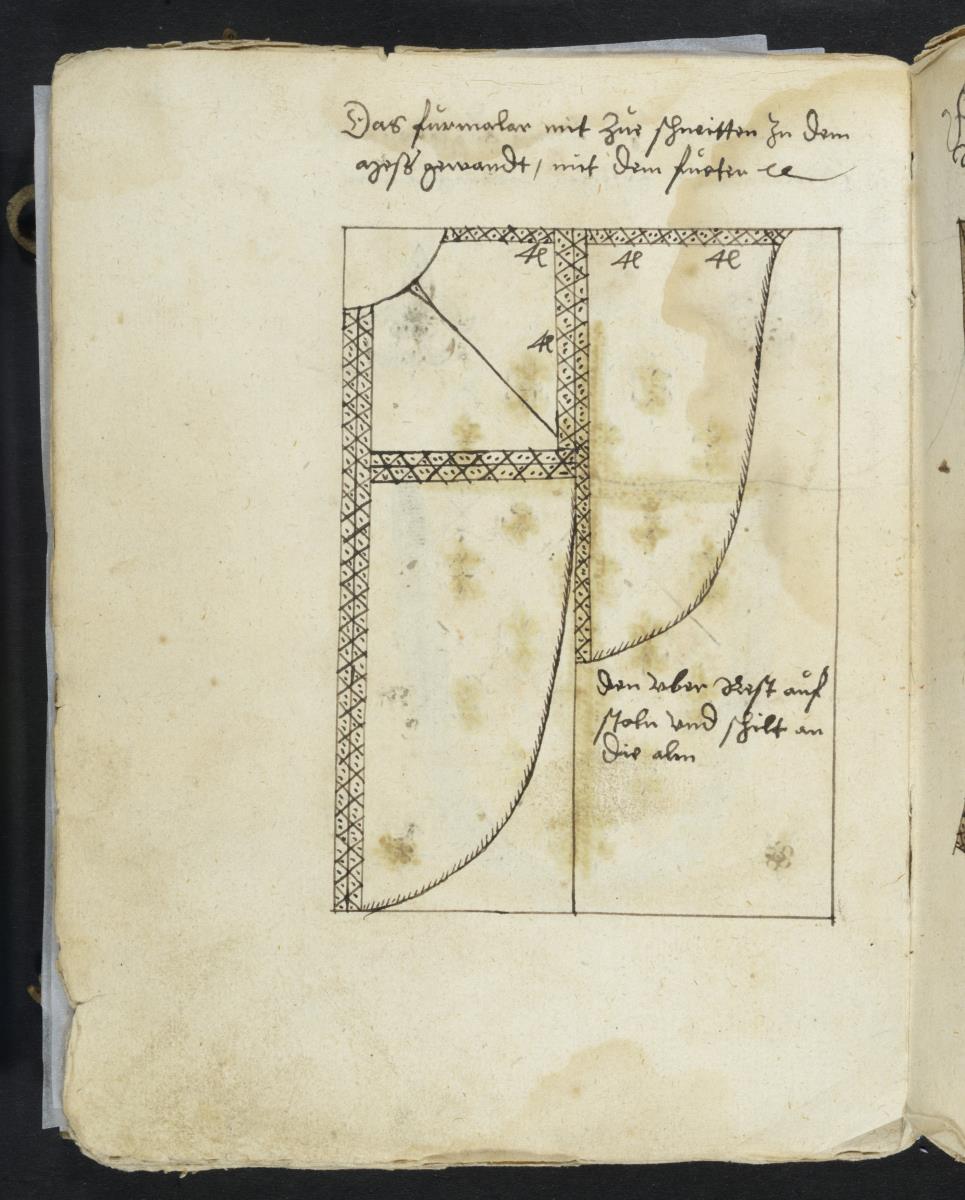 Das furmalar mit Zue schneitten Zu dem
Mess gewandt / mit dem fueter
4e 4e 4e
4e
den vber Rest auf
staln vnd schilt an
die alm